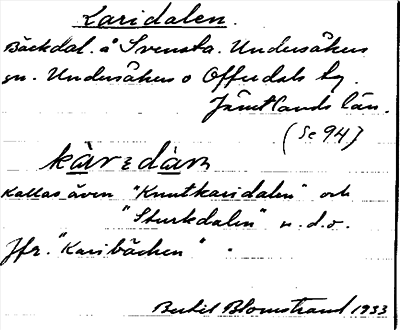 Karidalen.
Bäckdal. å Svensta. Undersåkers
sn. Undersåkers o Offerdals tg.
Jämtlands län.
(Se 94)
kàrɛdàɴ
Kallas även "Knutkaridalen" och
"Sturkdalen" n.d.o.
Jfr. "Karibäcken".
Bertil Blomstrand 1933